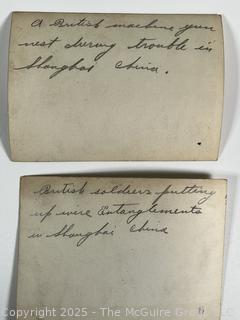 A British machine gun
nest during trouble in
Shanghai China.
British soldiers putting
up wire Entanglements
in Shanghai China
Copyright © 2025 - The McGuire Group